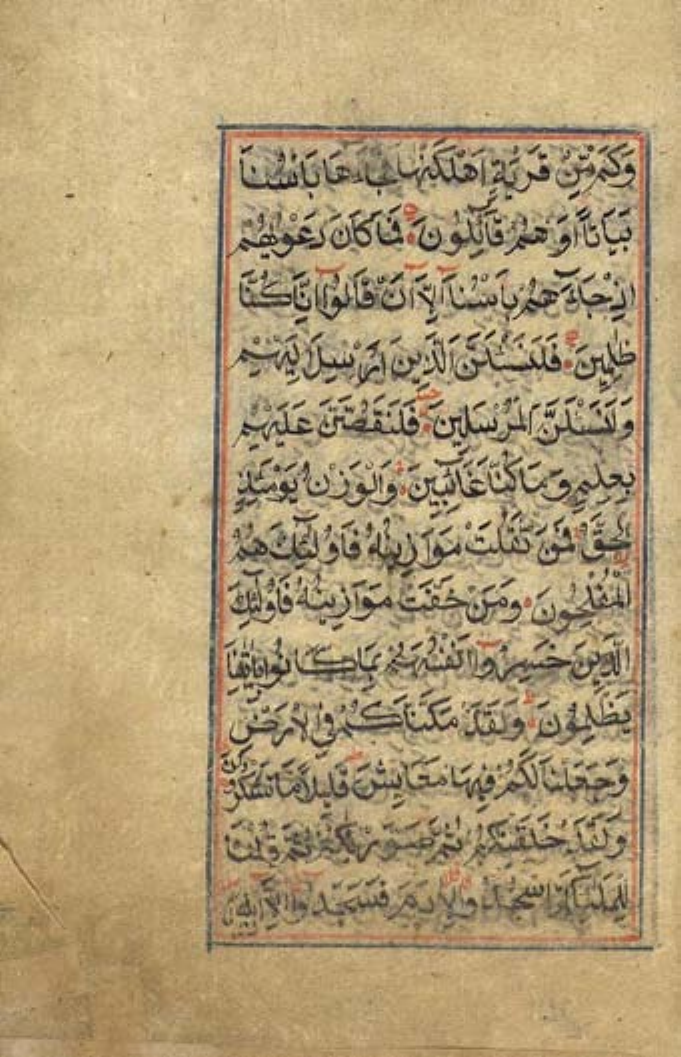 وَكَمْ مِّنْ قَرْيَةٍ اَهْلَكْنٰهَا فَجَآءَهَا بَاْسُنَا
بَيَاتًا اَوْ هُمْ قَآئِلُونَ فَمَا كَانَ دَعْوٰيهُمْ
اِذْ جَآءَهُمْ بَاْسُنَآ اِلَّآ اَنْ قَالُوٓا اِنَّا كُنَّا
ظٰلِمِينَ فَلَنَسْـَٔلَنَّ الَّذِينَ اُرْسِلَ اِلَيْهِمْ
وَلَنَسْـَٔلَنَّ الْمُرْسَلِينَ فَلَنَقُصَّنَّ عَلَيْهِمْ
بِعِلْمٍ وَمَا كُنَّا غَآئِبِينَ وَالْوَزْنُ يَوْمَئِذٍ
الْحَقُّ فَمَنْ ثَقُلَتْ مَوَازِينُهُ فَاُولٰٓئِكَ هُمُ
الْمُفْلِحُونَ وَمَنْ خَفَّتْ مَوَازِينُهُ فَاُولٰٓئِكَ
الَّذِينَ خَسِرُوٓا اَنْفُسَهُمْ بِمَا كَانُوا بِاٰيٰتِنَا
يَظْلِمُونَ وَلَقَدْ مَكَّنَّاكُمْ فِى الْاَرْضِ
وَجَعَلْنَا لَكُمْ فِيهَا مَعَايِشَ قَلِيلًا مَّا تَشْكُرُونَ
وَلَقَدْ خَلَقْنٰكُمْ ثُمَّ صَوَّرْنٰكُمْ ثُمَّ قُلْنَا
لِلْمَلٰٓئِكَةِ اسْجُدُوا لِاٰدَمَ فَسَجَدُوٓا اِلَّآ اِبْلِيسَ